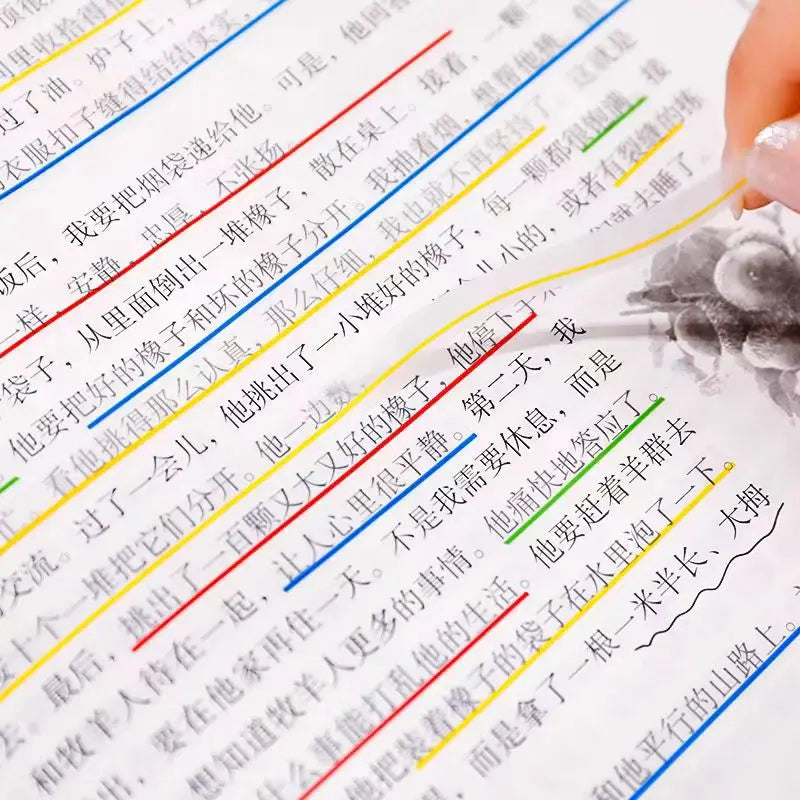 间里收拾得很
过了油。炉子上，还
衣服扣子缝得结结实实，
饭后，我要把烟袋递给他。可是，他回答
一样，安静，忠厚，不张扬。
袋子，从里面倒出一堆橡子，散在桌上。接着，一颗一
他要把好的橡子和坏的橡子分开。我抽着烟，想帮他挑，但
看他挑得那么认真，那么仔细，我也就不再坚持了。这就是
交流。过了一会儿，他挑出了一小堆好的橡子，每一颗都很饱满。接
按十个一堆把它们分开。他一边数，个儿小的，或者有裂缝的
最后，挑出了一百颗又大又好的橡子，他停下手就去睡了
和牧羊人待在一起，让人心里很平静。第二天，我
出，要在他家再住一天。不是我需要休息，而是
想知道牧羊人更多的事情。他痛快地答应了。
什么事能打乱他的生活。他要赶着羊群去
他把装着橡子的袋子在水里泡了一下。
，而是拿了一根一米半长、大拇
和他平行的山路上。